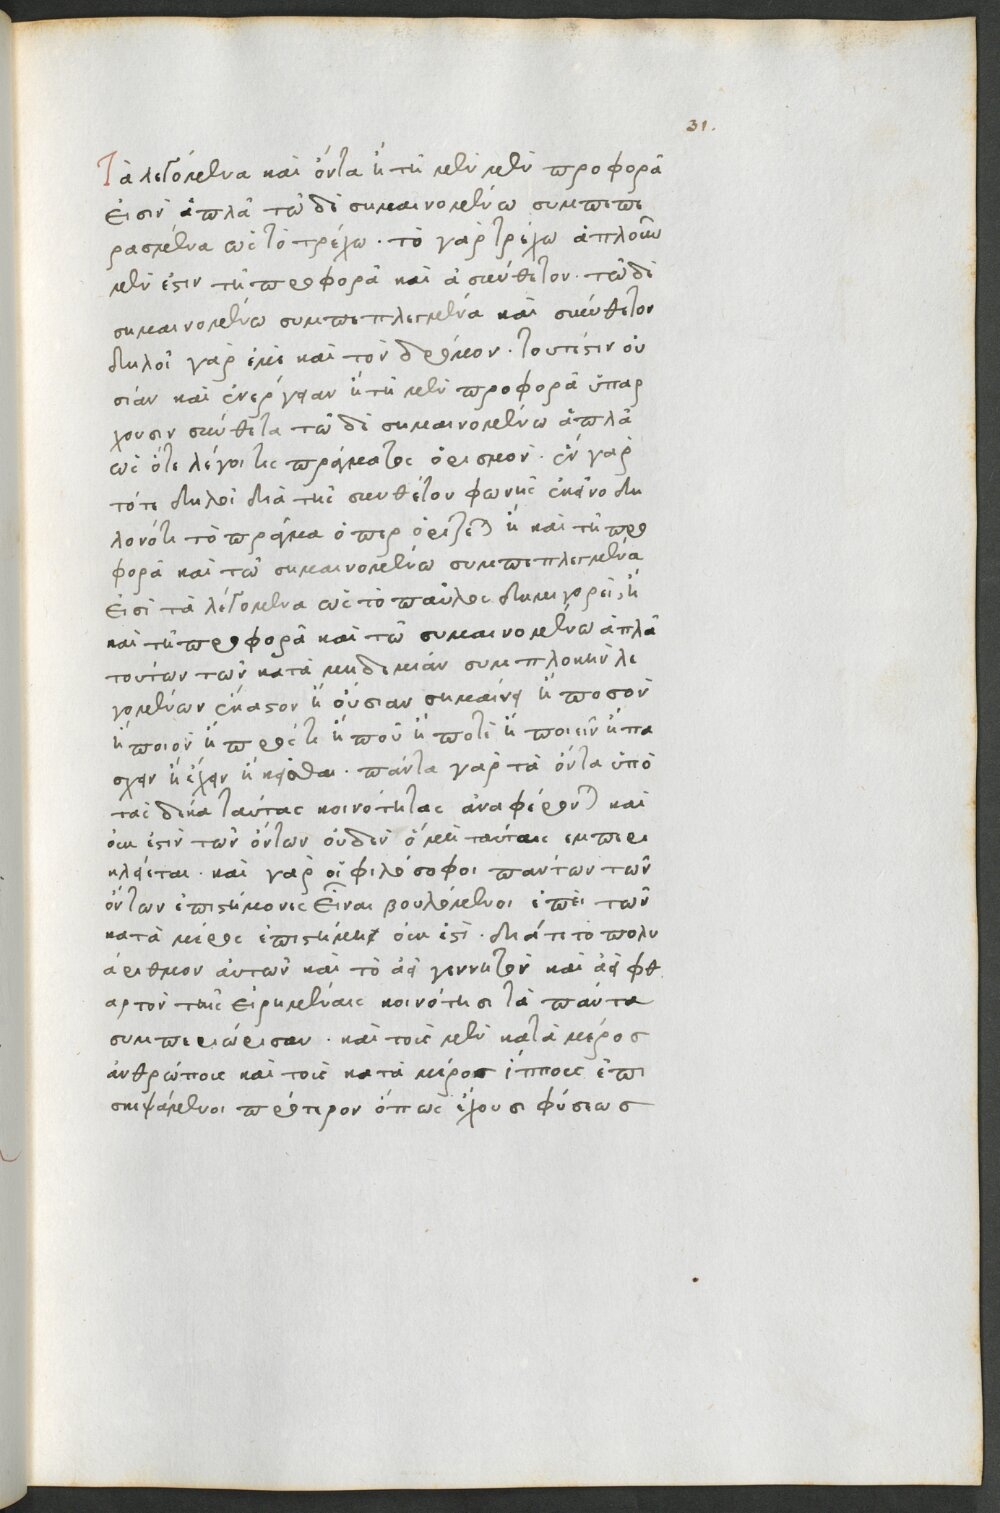 31.
Τὰ λεγόμενα καὶ ὄντα ἢ τῆ μὲν μὲν προφορᾶ
εἰσὶν ἁπλᾶ τῶ δὲ σημαινομένω συμπεπε
ρασμένα ὡς τὸ τρέχω · τὸ γὰρ τρέχω ἁπλοῦν
μέν ἐστιν τῆ προφορᾶ καὶ ἀσύνθετον · τῶ δὲ
σημαινομένω συμπεπλεγμένα καὶ σύνθετον
δηλοῖ γὰρ ἐμὲ καὶ τὸν δρόμον · τουτέστιν οὐ
σίαν καὶ ἐνέργειαν ἢ τῆ μὲν προφορᾶ ὑπάρ
χουσιν σύνθετα τῶ δὲ σημαινομένω ἁπλᾶ
ὡς ὅτε λέγοι τις πράγματος ὁρισμόν · ἓν γὰρ
τότε δηλοῖ διὰ τῆς συνθέτου φωνῆς ἐκεῖνο δη
λονότι τὸ πρᾶγμα ὅπερ ὁρίζεται ἢ καὶ τῆ προ
φορᾶ καὶ τῶ σημαινομένω συμπεπλεγμένα
εἰσὶ τὰ λεγόμενα ὡς τὸ παῦλος δημηγορεῖ, ἢ
καὶ τῆ προφορᾶ καὶ τῶ συμαινομένω ἁπλᾶ
τούτων τῶν κατὰ μηδεμίαν συμπλοκὴν λε
γομένων ἕκαστον ἢ οὐσίαν σημαίνει ἢ ποσὸν
ἢ ποιὸν ἢ πρός τι ἢ ποῦ ἢ ποτὲ ἢ ποιεῖν ἢ πα
σχειν ἢ ἔχειν ἢ κεῖσθαι · πάντα γὰρ τὰ ὄντα ὑπὸ
τὰς δέκα ταύτας κοινότητας ἀναφέρονται καὶ
οὐκ ἔστιν τῶν ὄντων οὐδὲν ὃ μὴ ταύταις εμπερι
κλείεται · καὶ γὰρ οἱ φιλόσοφοι πάντων τῶν
ὄντων ἐπιστήμονες εἶναι βουλόμενοι ἐπεὶ τῶν
κατὰ μέρος ἐπιστήμη οὐκ ἐστὶ · διά τι τὸ πολυ
άριθμον αὐτῶν καὶ τὸ ἀεὶ γεννητὸν καὶ ἀεὶ φθ
αρτὸν ταῖς εἰρημέναις κοινότησι τὰ πάντα
συμπεριώρισαν · καὶ τοῖς μὲν κατὰ μέρος
ἀνθρώποις καὶ τοῖς κατὰ μέρος ἵπποις ἐπι
σκεψάμενοι πρότερον ὅπως ἔχουσι φύσεως